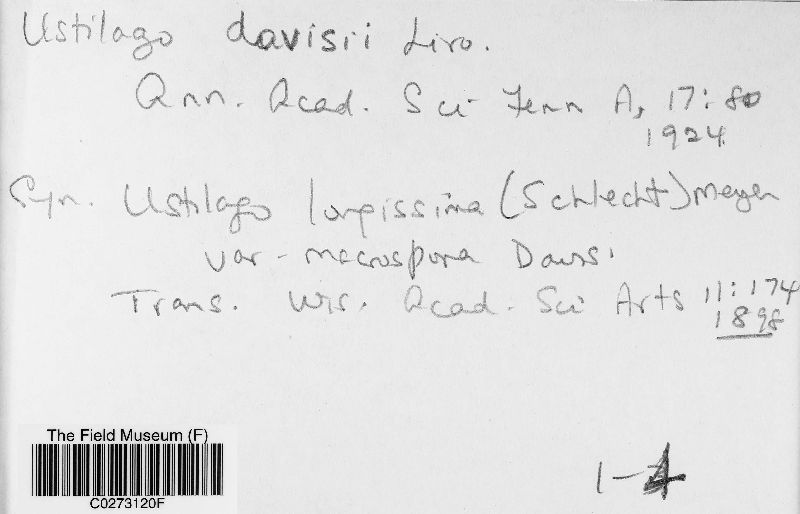 Ustilago davisii Liro.
Ann. Acad. Sci Fenn A, 17: 80
1924.
Syn. Ustilago longissima (Schlecht) Meyen
var - macrospora Davis.
Trans. Wis. Acad. Sci Arts 11: 174
1898
The Field Museum (F)
C0273120F